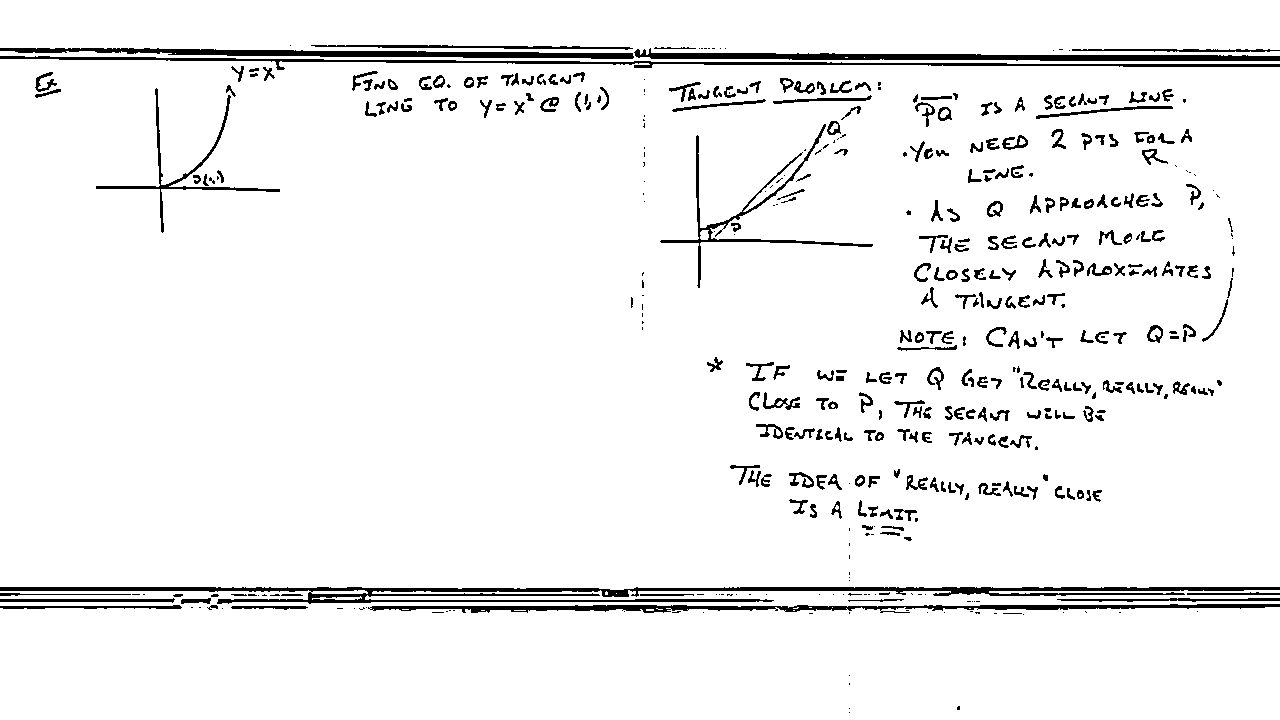 Ex
Y=X²
P(1,1)
FIND EQ. OF TANGENT
LINE TO Y=X² @ (1,1)
TANGENT PROBLEM:
Q
P
"PQ" IS A SECANT LINE.
• YOU NEED 2 PTS FOR A
LINE.
• AS Q APPROACHES P,
THE SECANT MORE
CLOSELY APPROXIMATES
A TANGENT.
NOTE: CAN'T LET Q=P
* IF WE LET Q GET "REALLY, REALLY, REALLY"
CLOSE TO P, THE SECANT WILL BE
IDENTICAL TO THE TANGENT.
THE IDEA OF "REALLY, REALLY" CLOSE
IS A LIMIT.